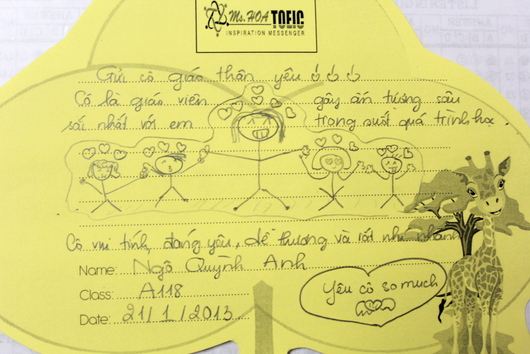 Ms. HOA TOEIC
INSPIRATION MESSENGER
Gửi cô giáo thân yêu
Cô là giáo viên gây ấn tượng sâu
sắc nhất với em trong suốt quá trình học.
Cô vui tính, đáng yêu, dễ thương và rất nhí nhảnh
Name: Ngô Quỳnh Anh
Class: A118
Date: 21/1/2013
Yêu cô so much